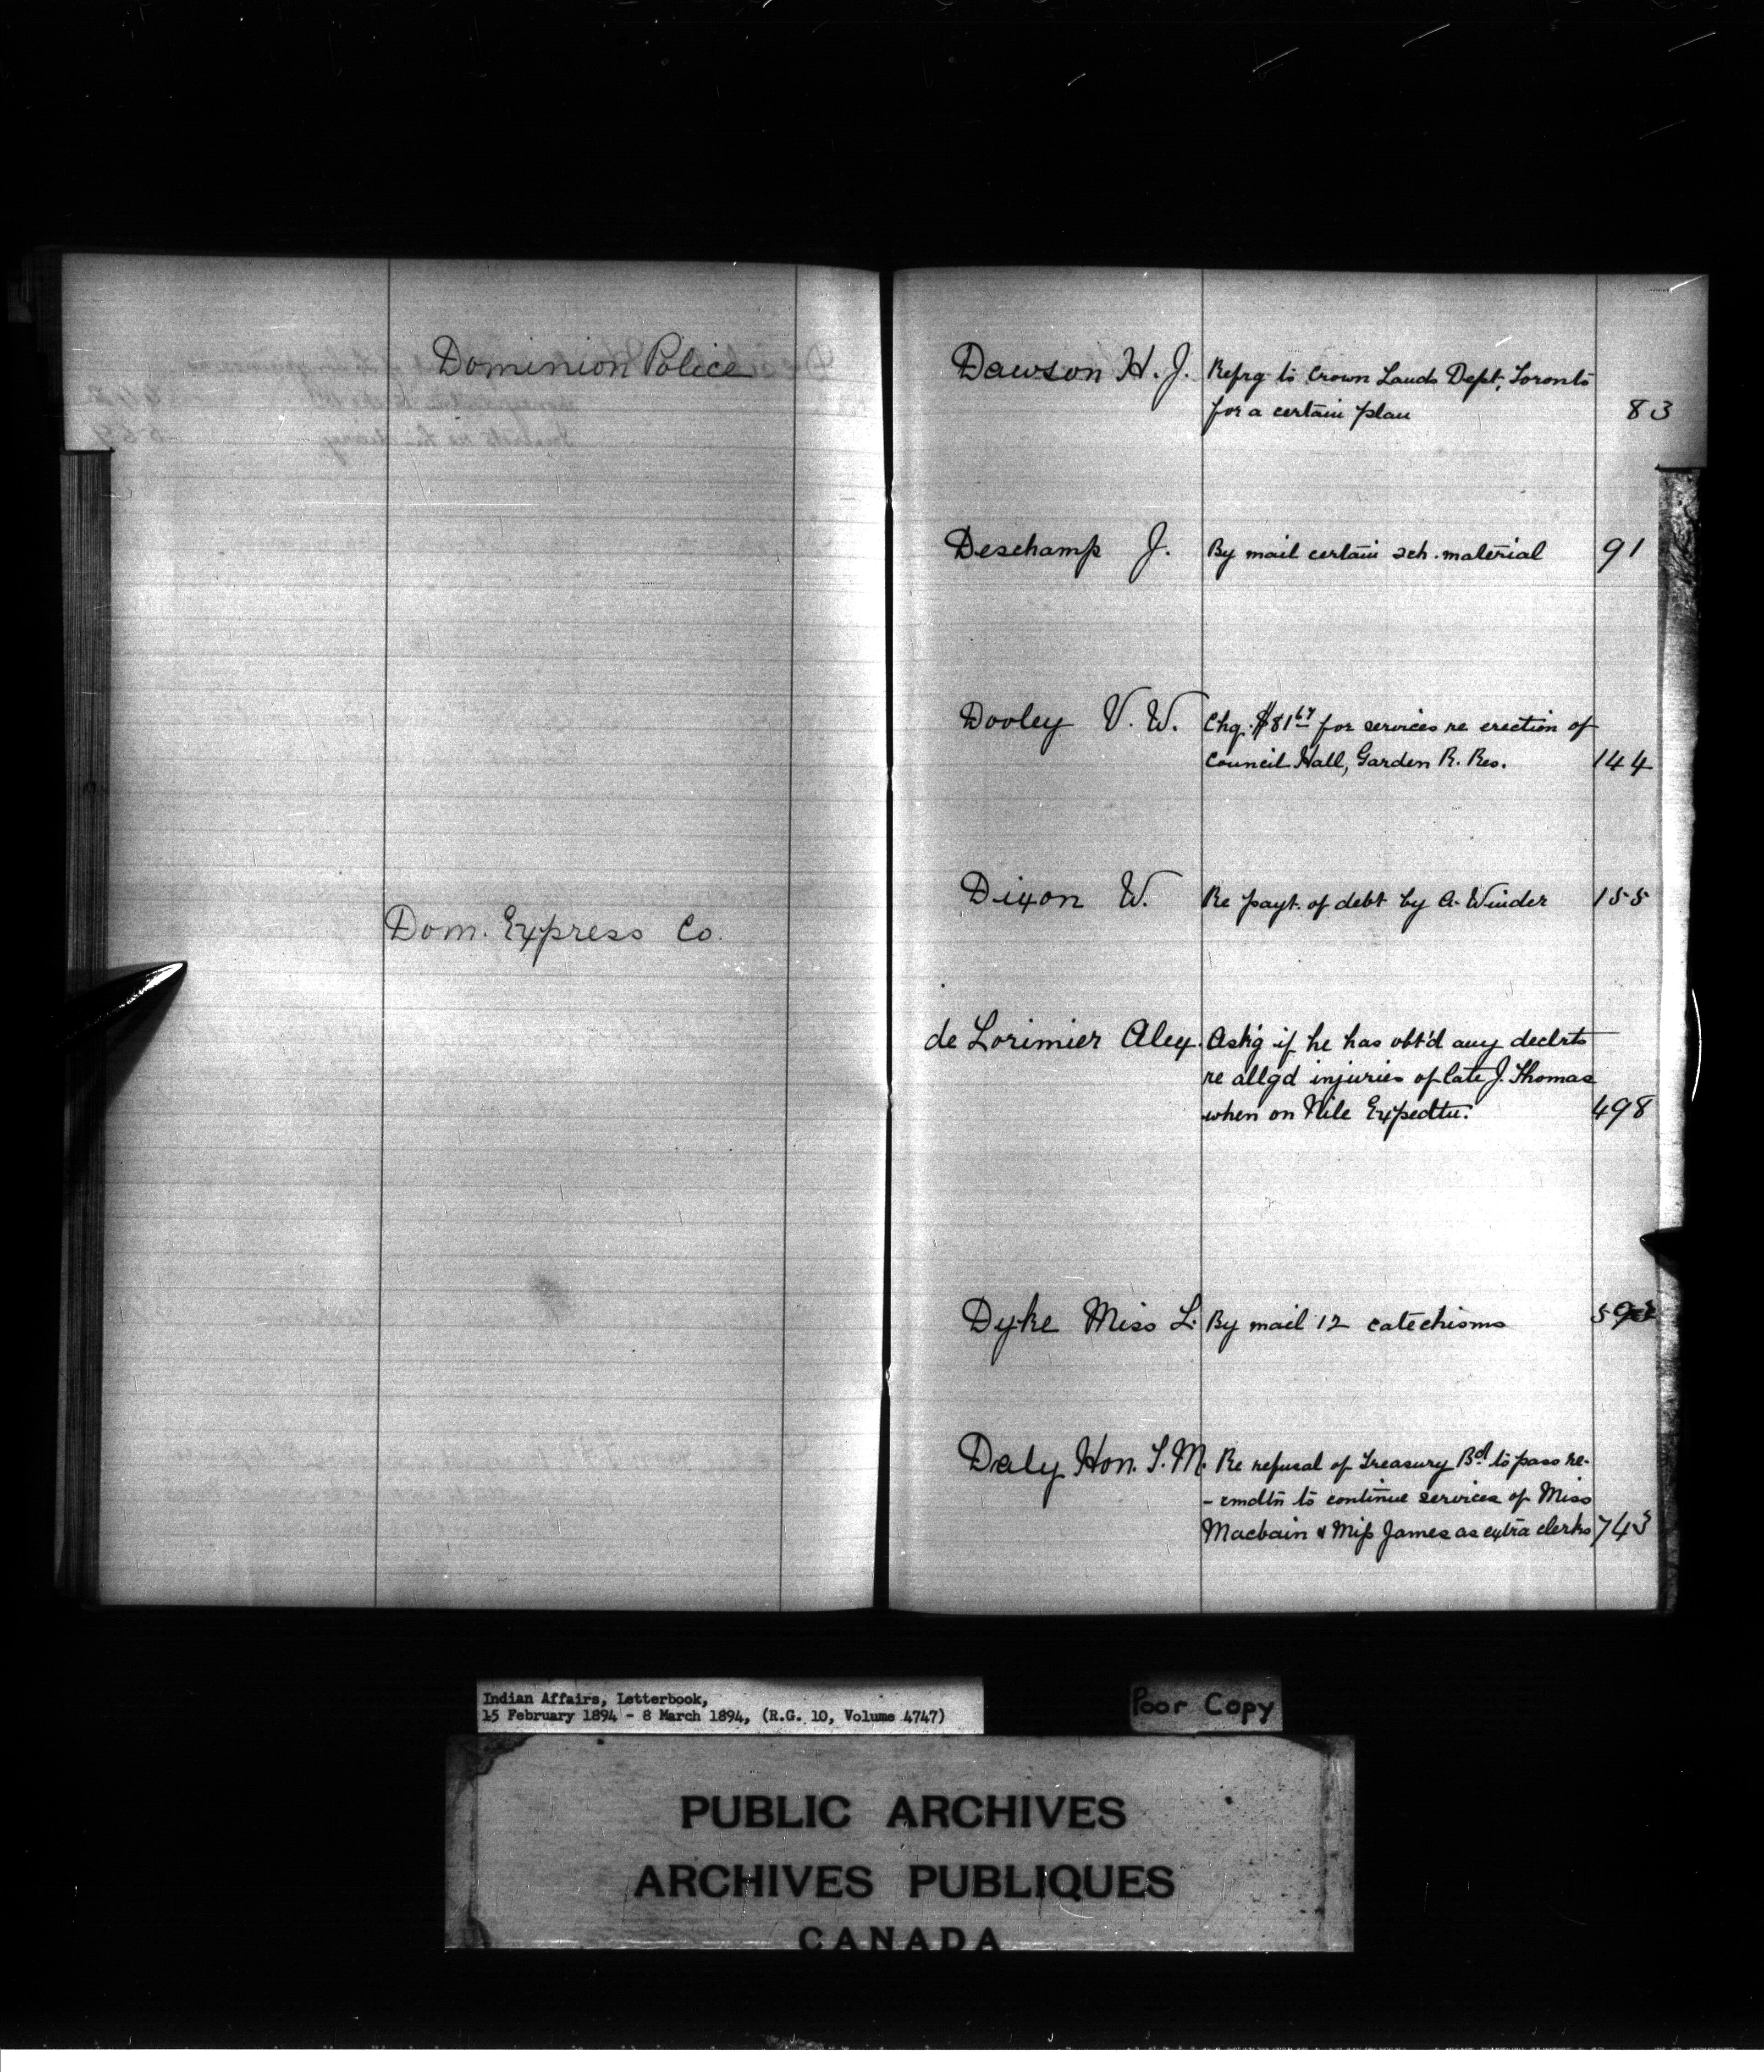 Dominion Police
Dom. Express Co.
Dawson H. J. Refrg to Crown Lands Dept, Toronto
for a certain plan 83
Deschamp J. By mail certain sch. material 91
Dooley V. W. Chq. $81 67 for services re erection of
Council Hall, Garden R. Res. 144
Dixon W. Re payt. of debt by A. Winder 155
de Lorimier Alex. Ask'g if he has obt'd any declrts
re allgd injuries of late J. Thomas
when on Nile Expedtn. 498
Dyke Miss L. By mail 12 catechisms
Daly Hon. T. M. Re refusal of Treasury Bd. to pass re-
-cmdtn to continue services of Miss
Macbain & Miss James as extra clerks 743
Indian Affairs, Letterbook,
15 February 1894 - 8 March 1894, (R.G. 10, Volume 4747)
Poor Copy
PUBLIC ARCHIVES
ARCHIVES PUBLIQUES
CANADA